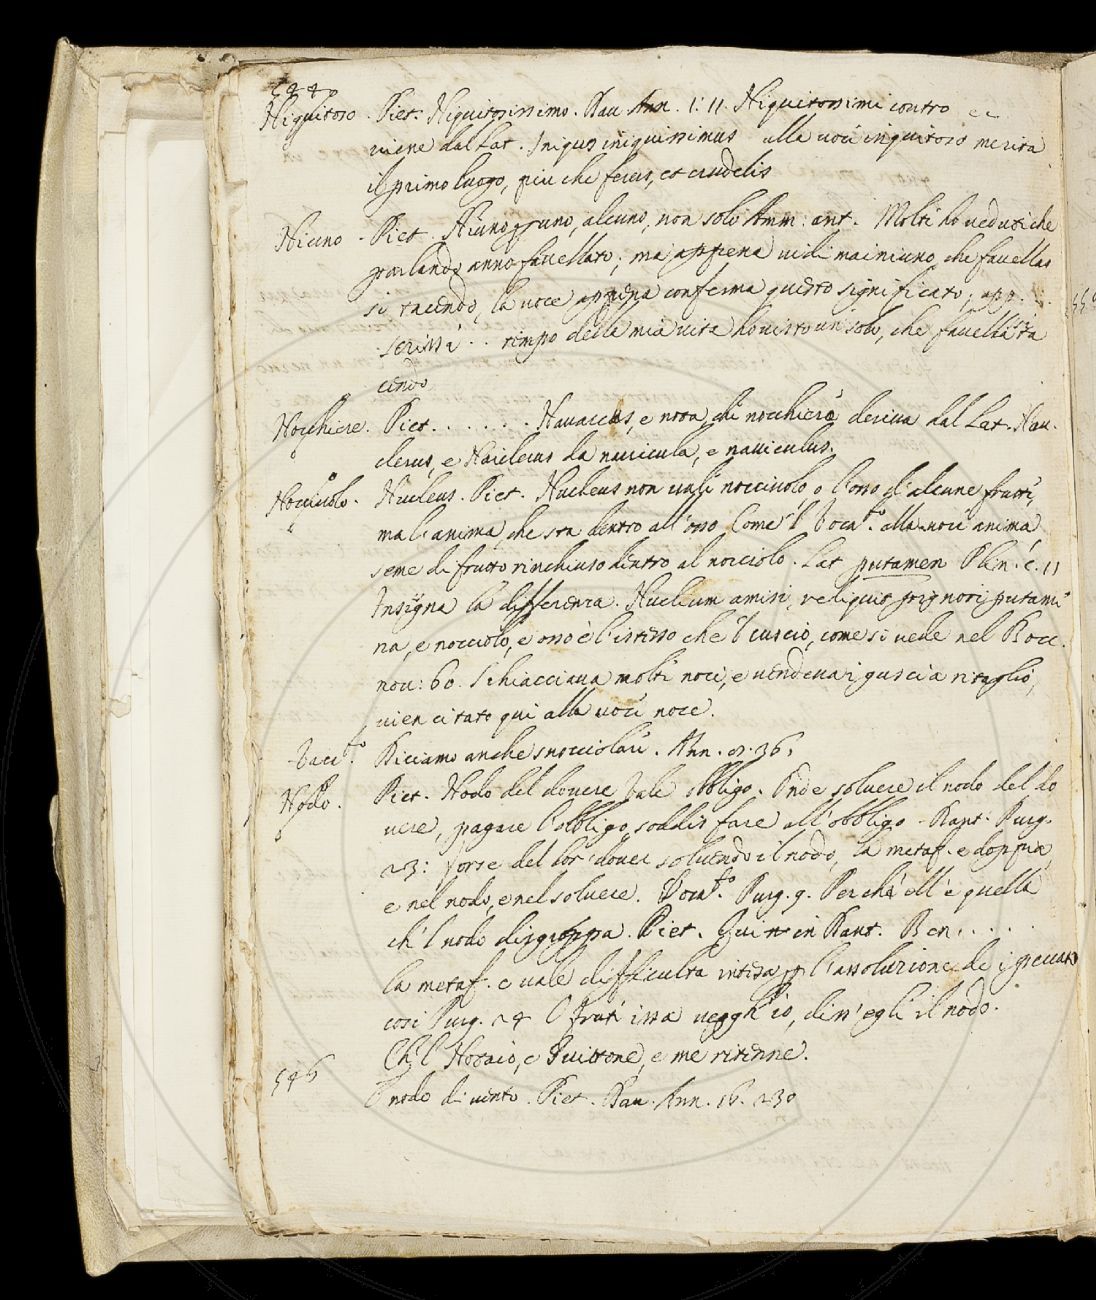 5440
Niquitoso. Piet. Niquitosissimo. Dau. Ann. 1. 11. Niquitosissimi contro ec
viene dal Lat. Iniqus iniquissimus alla uoci inquitoso merita
il primo luogo, piu che ferus, et crudelis
Niuno - Piet. Niuno p uno, alcuno, non solo Amm: ant. Molti ho ueduti che
parlando anno fauellato; ma appena uidi mai niuno, che fauellas
si tacendo, la uoce appena conferma questo significato; app.
tempo della mia uita ho uisto un solo, che fauellassi ta
cendo
Nocchiere. Piet. . . . . . . e nota che nocchiero deriua dal Lat. Nau
clerus, e Nauclerus da nauicula, e nauiculus.
Nocciuolo. Nucleus. Piet. Nucleus non uale nocciuolo o l'osso d'alcune frutti,
ma l'anima, che sta dentro all'osso. Come 'l Voca.º alla uoci anima
seme di frutto rinchiuso dentro al nocciolo. Lat putamen Plin. c. 11
Insegna la differenza. Nucleum amisi, reliquit pignori putami
na, e nocciolo, e osso è l'istesso che 'l guscio, come si uede nel Bocc.
nou: 60. Schiacciaua molti noci, e uendeua i gusci a ritaglio,
uien citato qui alla uoci noce.
Diciamo anche snocciolari. Ann. 36.
Nodo. Piet. Nodo del douere Vale obbligo. Onde soluere il nodo del do
uere, pagare l'obbligo, soddisfare all'obbligo - Dant. Purg.
23: forse del lor douer soluendo il nodo, la metaf. e doppia,
e nel nodo, e nel soluere. Voca.º Purg. 9. Perchè ell'è quella
ch'l nodo disgroppa. Piet. Qui in Dant. Ben . . . . .
la metaf. e uale difficulta intesa p l'assoluzione de i peccati
cosi Purg. 24 O frati issa uegg'h'io, diss'egli il nodo.
Ch'l Notaio, e Guittone, e me ritenne.
546 nodo di uento. Piet. Dau. Ann. 16. 230